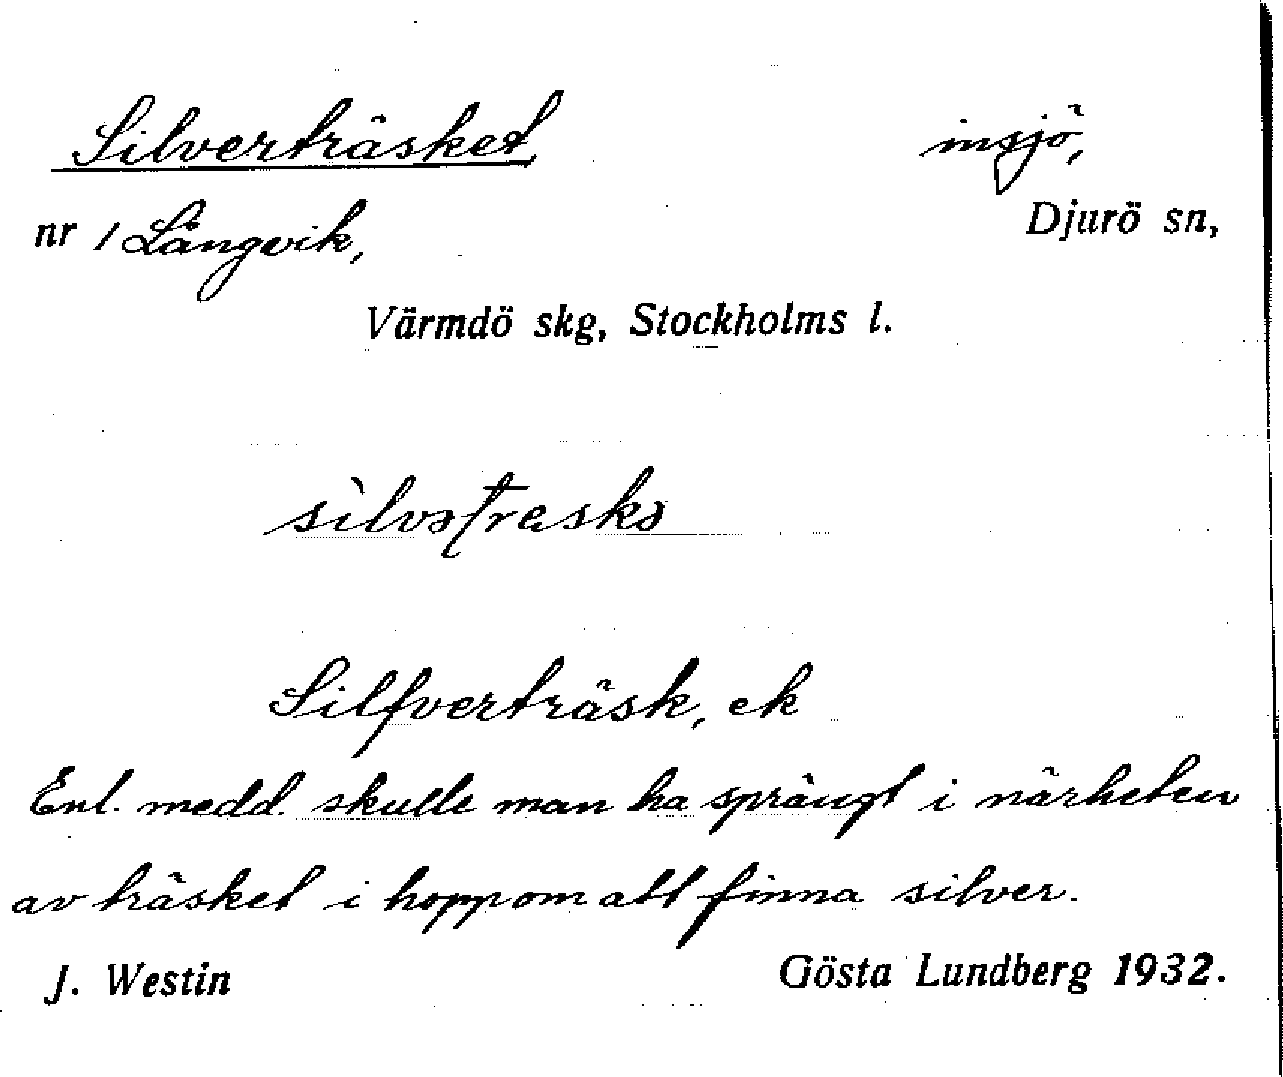 Silverträsket insjö,
nr 1 Långvik, Djurö sn,
Värmdö skg, Stockholms l.
sìlvətræskə
Silfverträsk, ek
Enl. medd. skulle man ha sprängt i närheten
av träsket i hopp om att finna silver.
J. Westin Gösta Lundberg 1932.